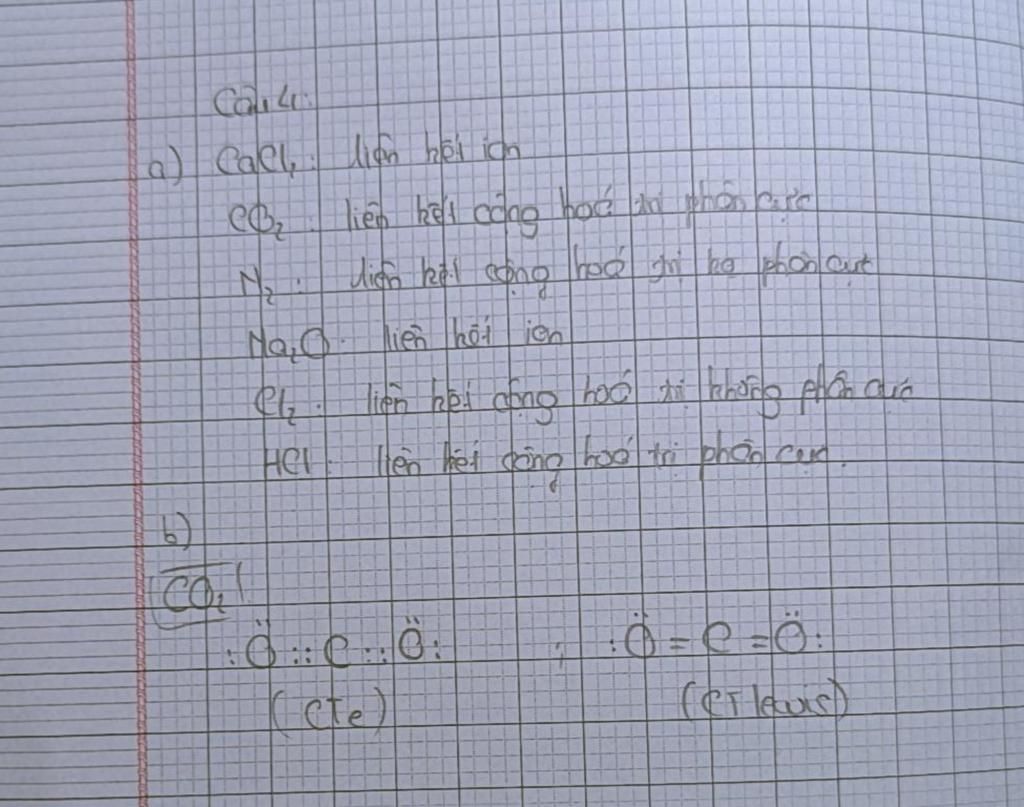 Câu 4:
a) CaCl₂: liên kết ion
CO₂: liên kết cộng hoá trị phân cực
N₂: liên kết cộng hoá trị ko phân cực
Na₂O: liên kết ion
Cl₂: liên kết cộng hoá trị không phân cực
HCl: liên kết cộng hoá trị phân cực.
b)
CO₂
:Ö::C::Ö: ; :Ö=C=Ö:
(CTe) (CT lewis)